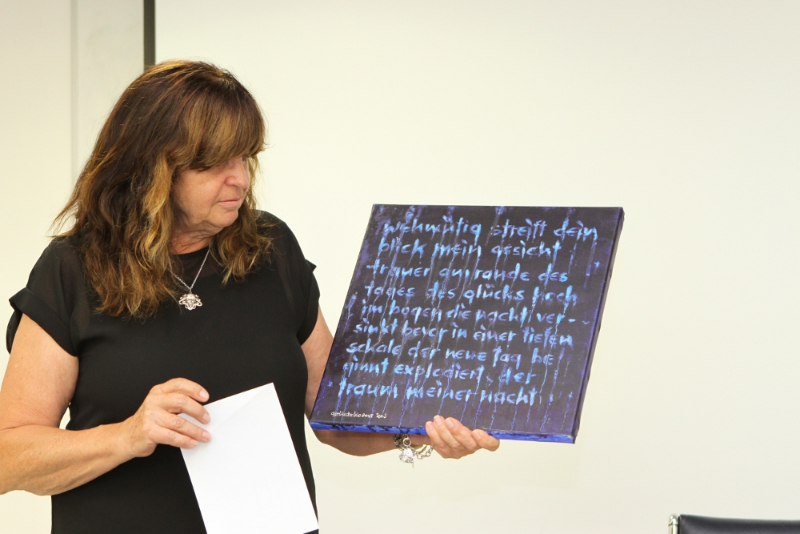 wehmütig streift dein
blick mein gesicht
trauer am rande des
tages des glücks hoch
im bogen die nacht, ver-
sinkt bevor in einer tiefen
schale der neue tag be
ginnt explodiert, der
traum meiner nacht